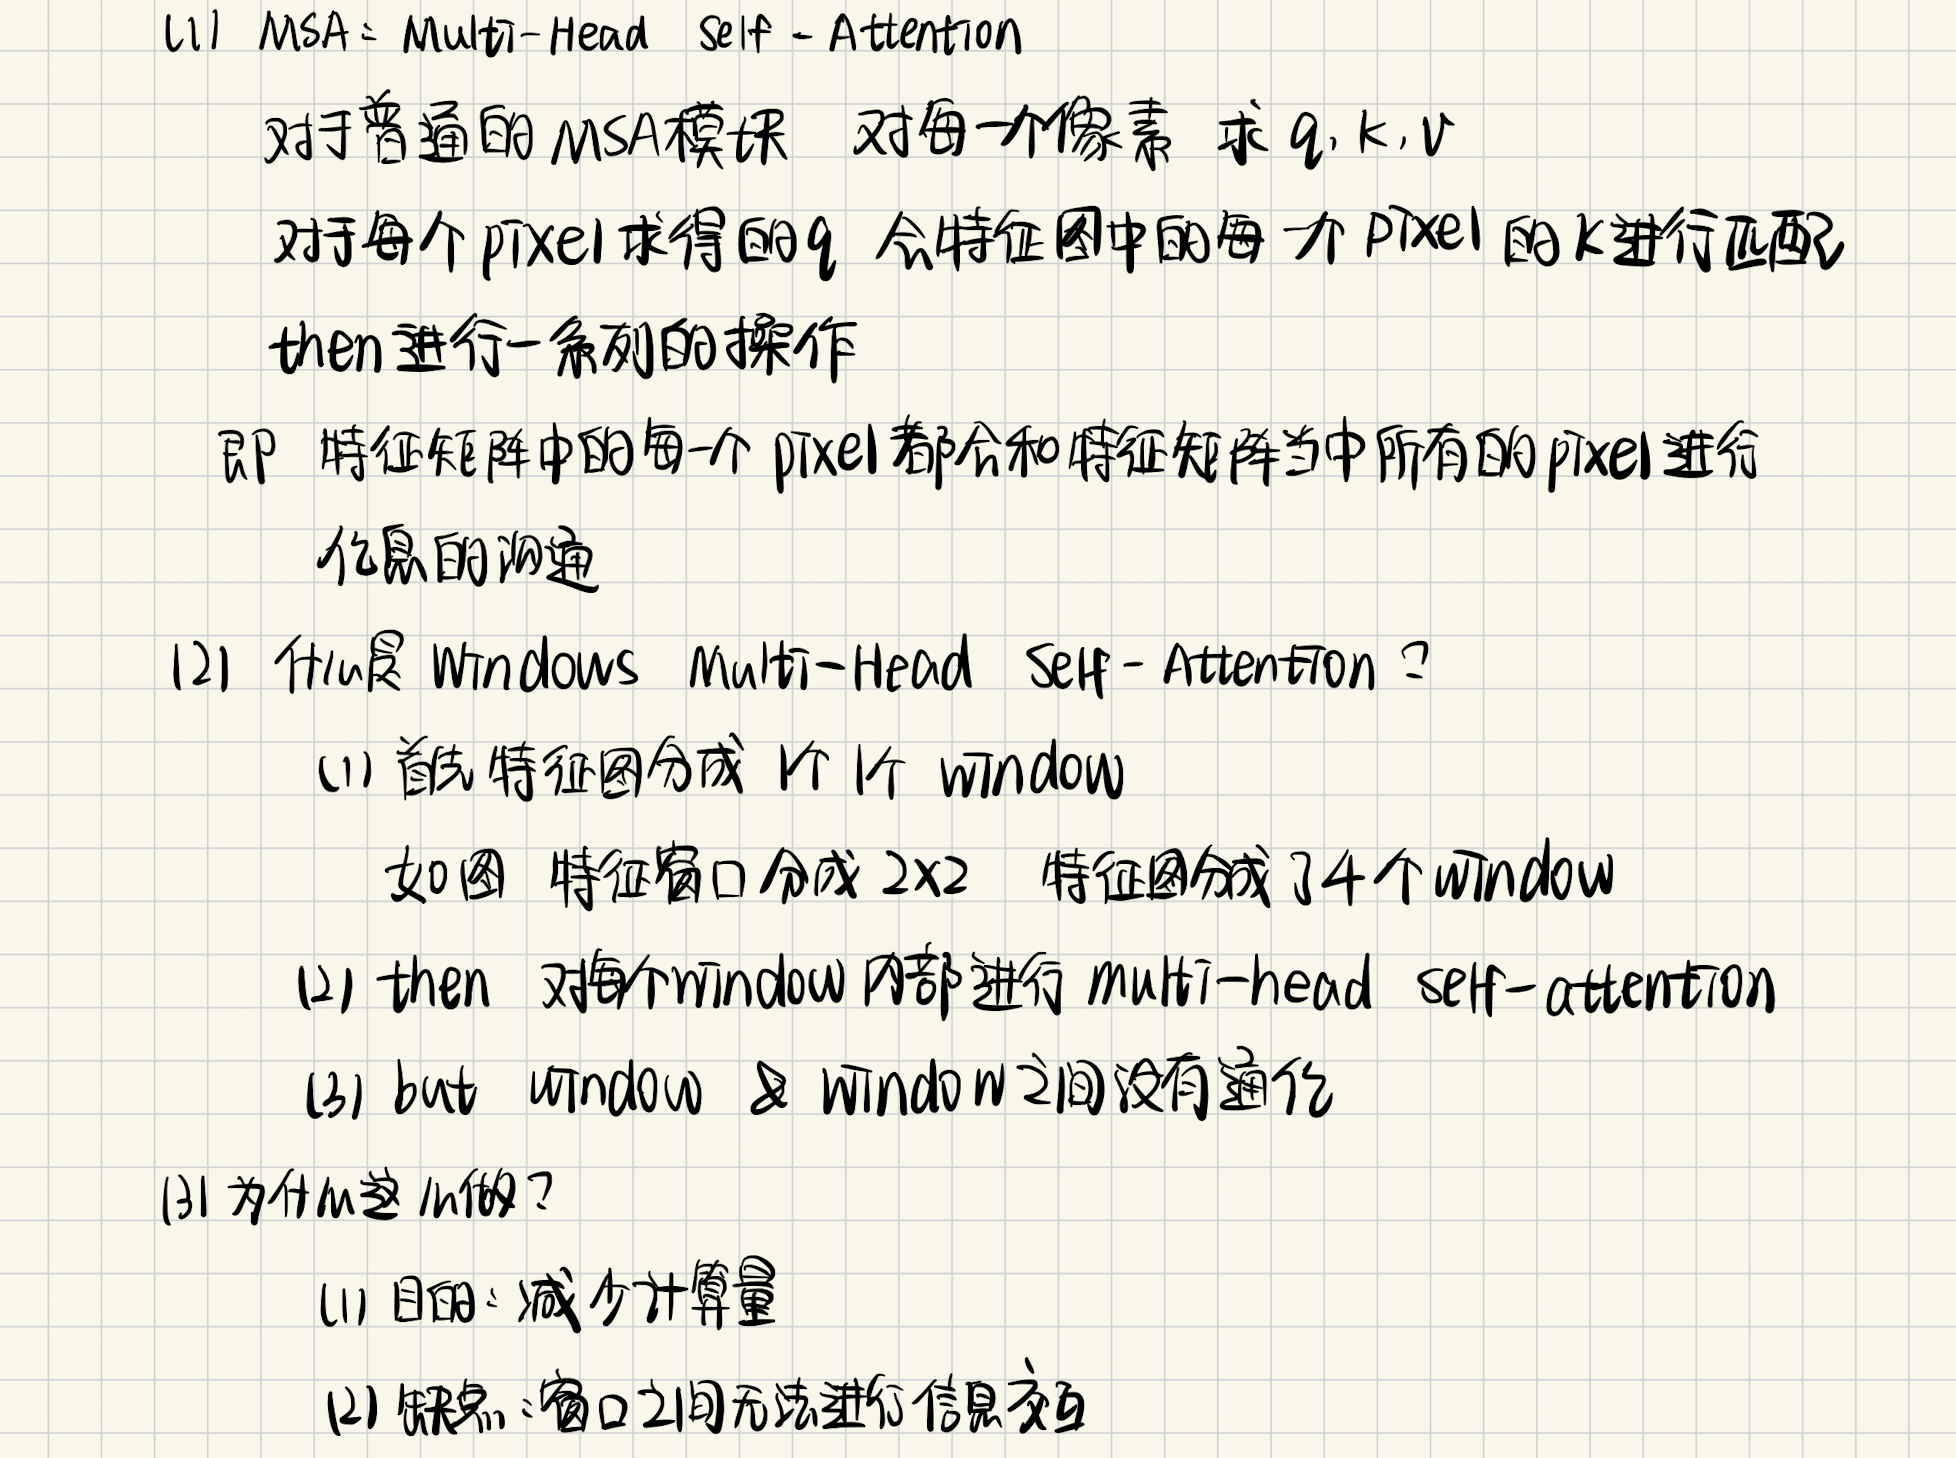 (1) MSA: Multi-Head Self-Attention
对于普通的MSA模块 对每一个像素 求 q, k, v
对于每个pixel求得的q 会特征图中的每一个pixel的k进行匹配
then进行一系列的操作
即 特征矩阵中的每一个pixel都会和特征矩阵当中所有的pixel进行
信息的沟通
(2) 什么是 Windows Multi-Head Self-Attention?
(1) 首先特征图分成 1个1个 window
如图 特征窗口分成2x2 特征图分成了4个window
(2) then 对每个window内部进行multi-head self-attention
(3) but window & window之间没有通信
(3) 为什么这么做?
(1) 目的: 减少计算量
(2) 缺点: 窗口之间无法进行信息交互